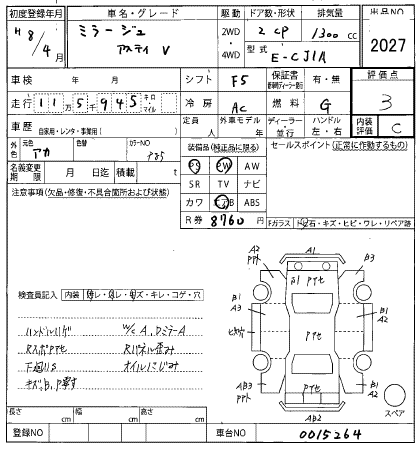 初度登録年月 車名・グレード 駆動 ドア数・形状 排気量 出品NO
H8/4 ミラージュ アスティ V 2WD 4WD 2 CP 1300 cc 2027
型式 E-CJ1A
車検 年 月 シフト F5 保証書 有・無 評価点
走行 11万5千945 キロ・マイル 冷房 AC 燃料 G 3
車歴 自家用・レンタ・事業用( ) 定員 人 外車モデル 年 ディーラー・並行 ハンドル 左・右 内装評価 C
外色 元色 アカ 色替 カラーNO 装備品(純正品に限る) セールスポイント(正常に作動するもの)
名義変更期限 月 日迄 積載 t PS PW AW
注意事項(欠品・修復・不具合箇所および状態) SR TV ナビ
カワ エアB ABS
R券 8760円 Fガラス トビ石・キズ・ヒビ・ワレ・リペア跡
A2 A1 B3
B1 PTセ
検査員記入 内装 コゲ・穴 B1 A3 B1 A2
ハンドルハゲ W/C A, DミラーA
RスポPTセ Rパネル歪み
下廻りS オイルにじみ
AB3 B1 A2
AB2 スペア
長さ cm 幅 cm 高さ cm
登録NO 車台NO 0015264